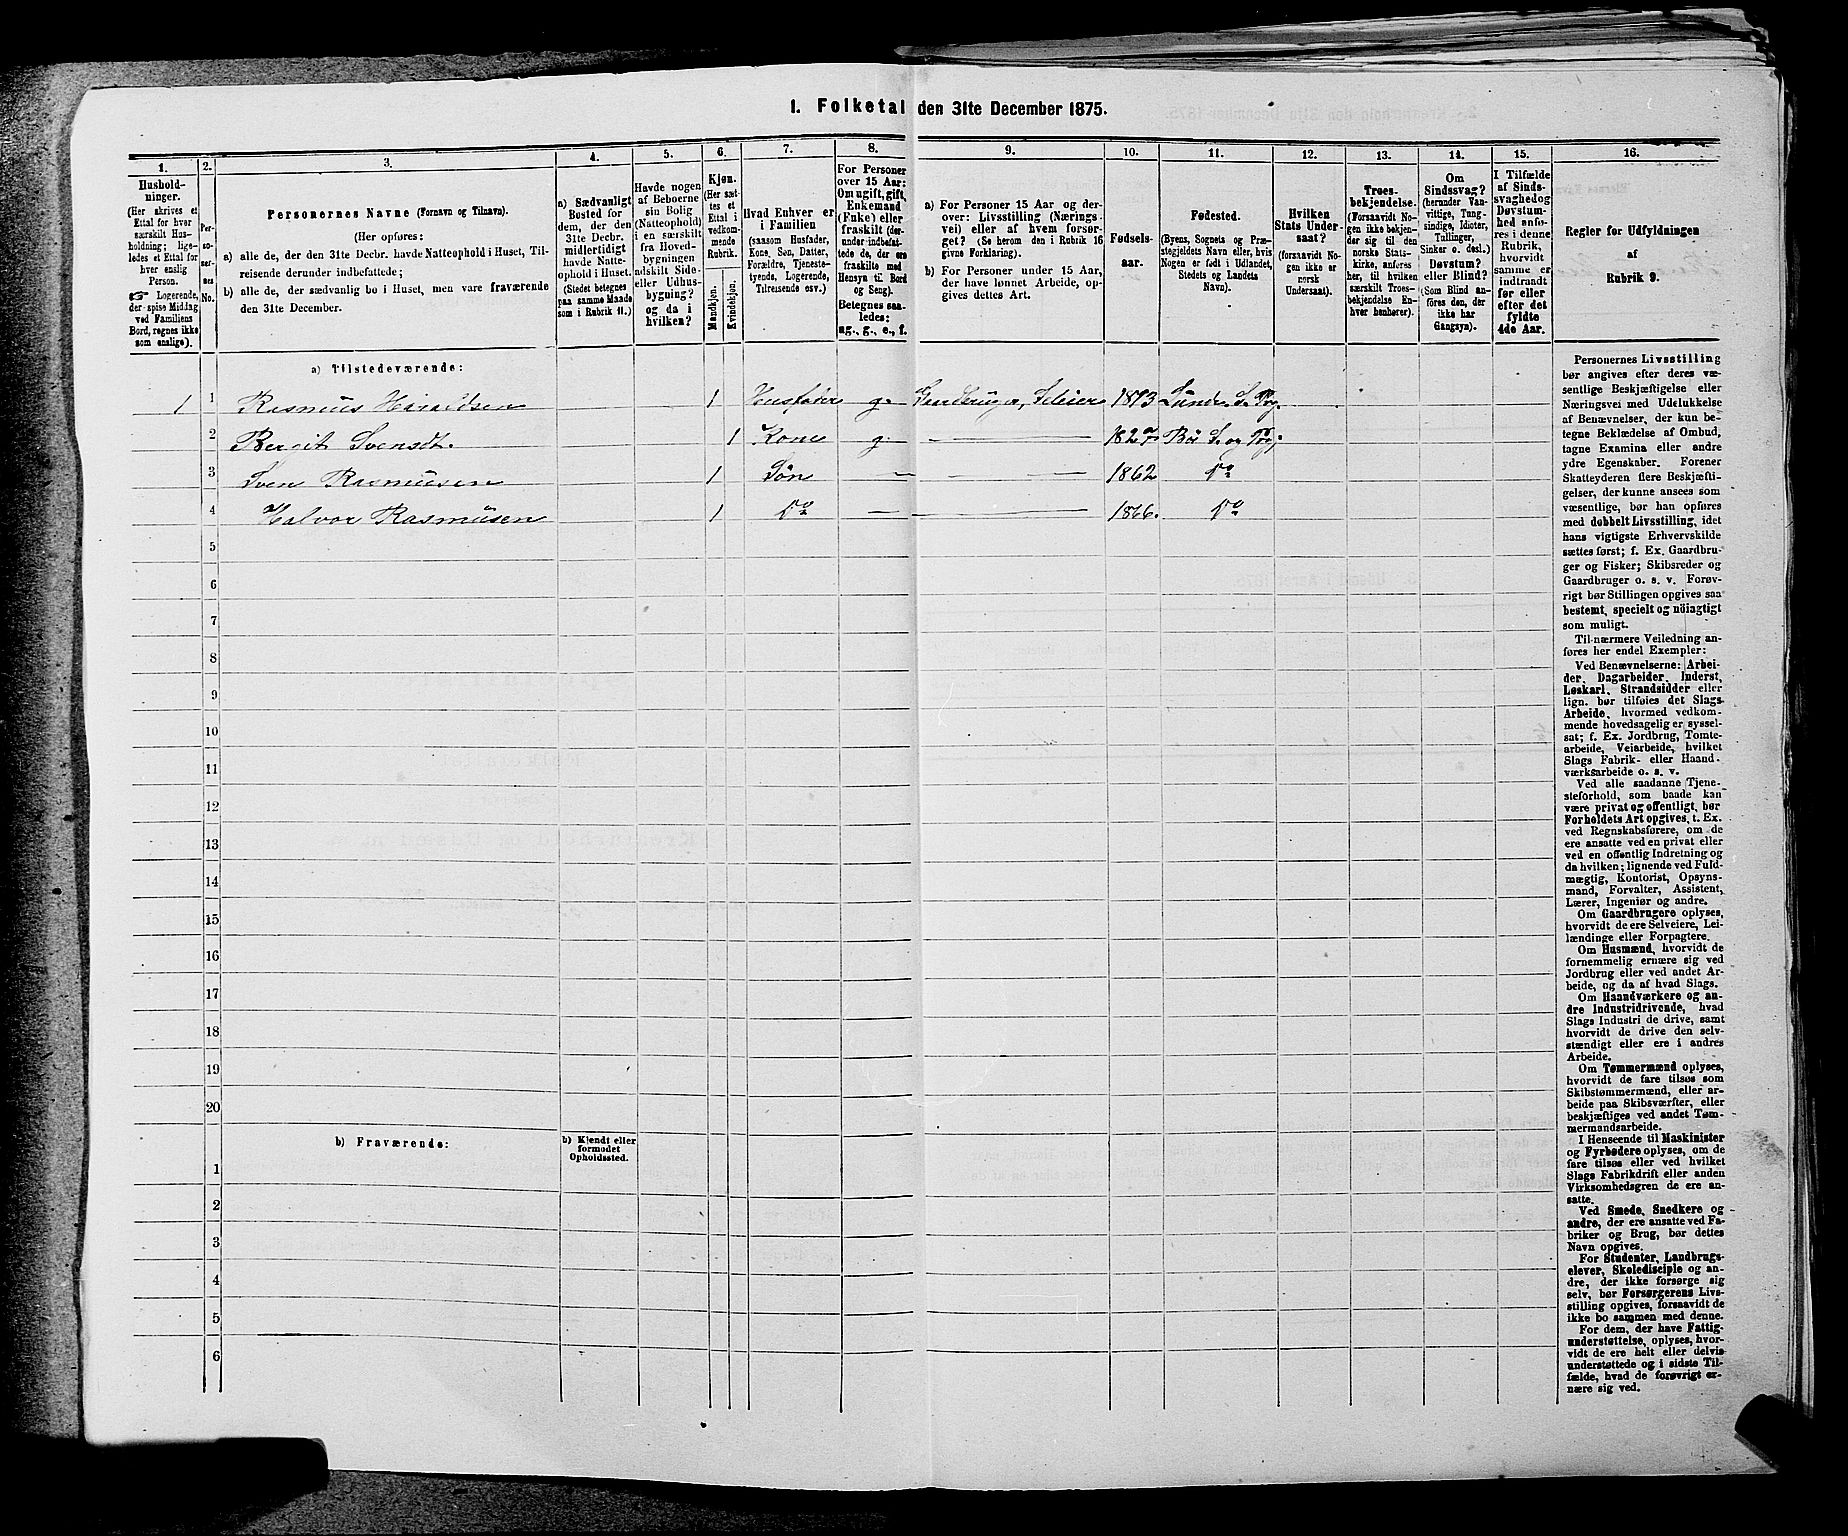 1. Folketal den 31te December 1875.
1. 2. 3. 4. 5. 6. 7. 8. 9. 10. 11. 12. 13. 14. 15. 16.
Hushold-
ninger.
(Her skrives et
Ettal for hver
særskilt Hus-
holdning; lige-
ledes et Ettal for
hver enslig
Person.
☞ Logerende,
der spise Middag
ved Familiens
Bord, regnes ikke
som enslige).
Per-
so-
ner-
nes
No.
Personernes Navne (Fornavn og Tilnavn).
(Her opføres:
a) alle de, der den 31te Decbr. havde Natteophold i Huset, Til-
reisende derunder indbefattede;
b) alle de, der sædvanlig bo i Huset, men vare fraværende
den 31te December.
a) Sædvanligt
Bosted for
dem, der den
31te Decbr.
midlertidigt
havde Natte-
ophold i Huset.
(Stedet betegnes
paa samme Maade
som i Rubrik 11.)
Havde nogen
af Beboerne
sin Bolig
(Natteophold)
i en særskilt
fra Hoved-
bygningen
adskilt Side-
eller Udhus-
bygning?
og da i
hvilken?
Kjøn.
(Her sæt-
tes et
Ettal i
vedkom-
mende
Rubrik.
Mandkjøn.
Kvindekjøn.
Hvad Enhver er
i Familien
(saasom Husfader,
Kone, Søn, Datter,
Forældre, Tjeneste-
tyende, Logerende,
Tilreisende osv.).
For Personer
over 15 Aar:
Om ugift, gift,
Enkemand
(Enke) eller
fraskilt (der-
under indbefat-
tede de, der ere
fraskilte med
Hensyn til Bord
og Seng).
Betegnes saa-
ledes:
ug., g., e., f.
a) For Personer 15 Aar og der-
over: Livsstilling (Nærings-
vei) eller af hvem forsør-
get? (Se herom den i Rubrik 16
givne Forklaring).
b) For Personer under 15 Aar,
der have lønnet Arbeide, op-
gives dettes Art.
Fødsels-
aar.
Fødested.
(Byens, Sognets og Præ-
stegjeldets Navn eller, hvis
Nogen er født i Udlandet,
Stedets og Landets
Navn).
Hvilken
Stats Under-
saat?
(forsaavidt No-
gen ikke er
norsk
Undersaat).
Troes-
bekjendelse.
(Forsaavidt No-
gen ikke bekjen-
der sig til den
norske Stats-
kirke, anføres
her, til hvilken
særskilt Troes-
bekjendelse En-
hver henhører).
Om
Sindssvag?
(herunder Van-
vittige, Tung-
sindige, Idioter,
Tullinger,
Sinker o. desl.)
Døvstum?
eller Blind?
(Som Blind an-
føres den, der
ikke har
Gangsyn).
I Tilfælde
af Sinds-
svaghed og
Døvstum-
hed anfø-
res i denne
Rubrik,
hvorvidt
samme er
indtrandt
før eller
efter det
fyldte
4de Aar.
Regler for Udfyldningen
af
Rubrik 9.
a) Tilstedeværende:
1 1 Rasmus Haraldsen 1 Husfader g. Gaardbruger, Seleier 1813 Lunde S. Pg.
2 Bergit Svensdt. 1 Kone g. — — 1827 Bø S. og Pg.
3 Sven Rasmusen 1 Søn — — 1862 Do
4 Halvor Rasmusen 1 Do — — 1866. Do
5
6
7
8
9
10
11
12
13
14
15
16
17
18
19
20
b) Fraværende:
b) Kjendt eller
formodet
Opholdssted.
1
2
3
4
5
6
Personernes Livsstilling
bør angives efter deres væ-
sentlige Beskjæftigelse eller
Næringsvei med Udelukkelse
af Benævnelser, der kun be-
tegne Beklædelse af Ombud,
tagne Examina eller andre
ydre Egenskaber. Forener
Skatteyderen flere Beskjæfti-
gelser, der kunne ansees som
væsentlige, bør han opføres
med dobbelt Livsstilling, idet
hans vigtigste Erhvervskilde
sættes først; f. Ex. Gaardbru-
ger og Fisker; Skibsreder og
Gaardbruger o. s. v. Forøv-
rigt bør Stillingen opgives saa
bestemt, specielt og nöiagtigt
som muligt.
Til nærmere Veiledning an-
føres her endel Exempler:
Ved Benævnelserne: Arbei-
der, Dagarbeider, Inderst,
Løskarl, Strandsidder eller
lign. bør tilføies det Slags
Arbeide, hvormed vedkom-
mende hovedsagelig er syssel-
sat; f. Ex. Jordbrug, Tomte-
arbeide, Veiarbeide, hvilket
Slags Fabrik- eller Haand-
værksarbeide o. s. v.
Ved alle saadanne Tjene-
steforhold, som baade kan
være privat og offentligt, bør
Forholdets Art opgives, t. Ex.
ved Regnskabsførere, om de
ere ansatte ved en privat eller
ved en offentlig Indretning og
da hvilken; lignende ved Fuld-
mægtig, Kontorist, Opsyns-
mand, Forvalter, Assistent,
Lærer, Ingeniør og andre.
Om Gaardbrugere oplyses,
hvorvidt de ere Selveiere, Lei-
lændinge eller Forpagtere.
Om Husmænd, hvorvidt de
fornemmelig ernære sig ved
Jordbrug eller ved andet Ar-
beide, og da af hvad Slags.
Om Haandværkere og an-
dre Industridrivende, hvad
Slags Industri de drive, samt
hvorvidt de drive den selv-
stændigt eller ere i andres
Arbeide.
Om Tømmermænd oplyses,
hvorvidt de fare tilsøs som
Skibstømmermænd, eller ar-
beide paa Skibsværfter, eller
beskjæftiges ved andet Tøm-
mermandsarbeide.
I Henseende til Maskinister
og Fyrbødere oplyses, om de
fare tilsøs eller ved hvilket
Slags Fabrikdrift eller anden
Virksomhedsgren de ere an-
satte.
Ved Smede, Snedkere og
andre, der ere ansatte ved Fa-
briker og Brug, bør dettes
Navn opgives.
For Studenter, Landbrugs-
elever, Skoledisciple og an-
dre, der ikke forsørge sig
selv, bør Forsørgerens Livs-
stilling opgives, forsaavidt de
ikke bo sammen med denne.
For dem, der have Fattig-
understøttelse, oplyses, hvor-
vidt de ere helt eller delvis
understøttede og i sidste Til-
fælde, hvad de forøvrigt er-
nære sig ved.